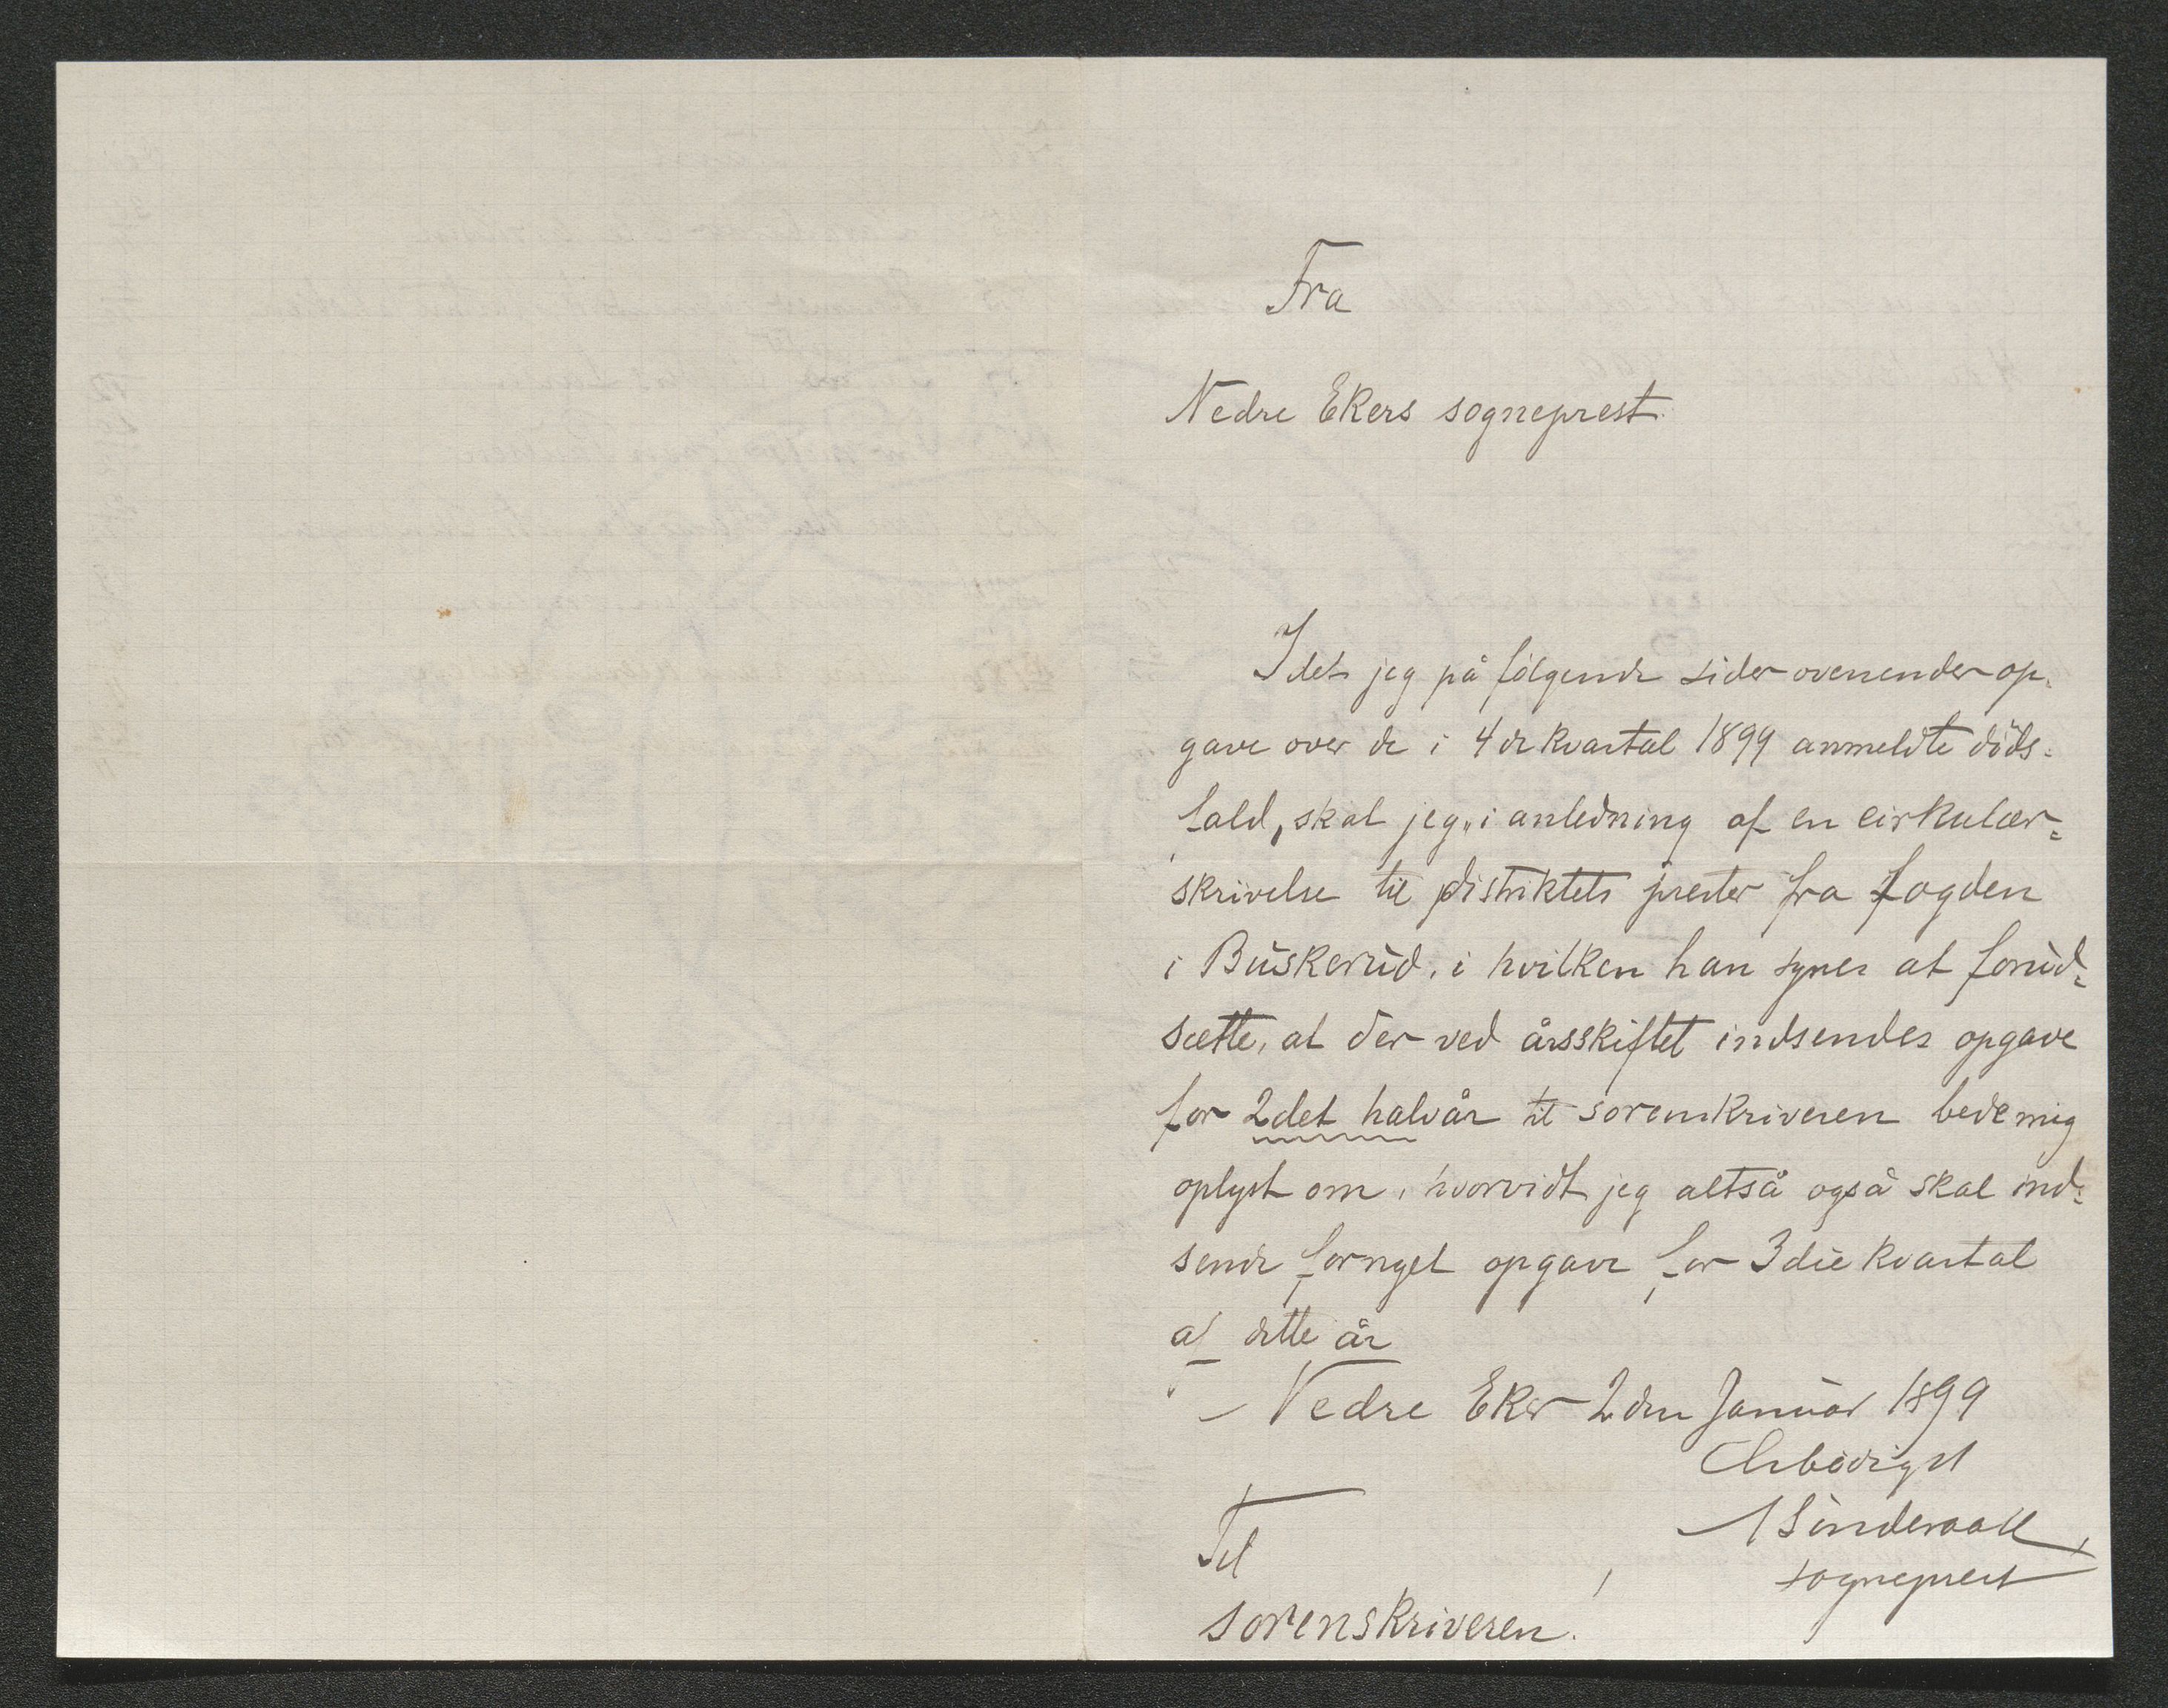 Fra
Nedre Ekers sogneprest
Idet jeg på følgende sider ovenender op-
gave over de i 4de kvartal 1899 anmeldte døds-
fald, skal jeg, i anledning af en cirkulær-
skrivelse til distriktets prester fra fogden
i Buskerud, i hvilken han synes at forud-
sætte, at der ved årsskiftet indsendes opgave
for 2det halvår til sorenskriveren bede mig
oplyst om, hvorvidt jeg altså også skal ind-
sende fornyet opgave for 3die kvartal
af dette år
Nedre Eker 2den Januar 1899
Ærbødigst
sogneprest
Til
sorenskriveren.